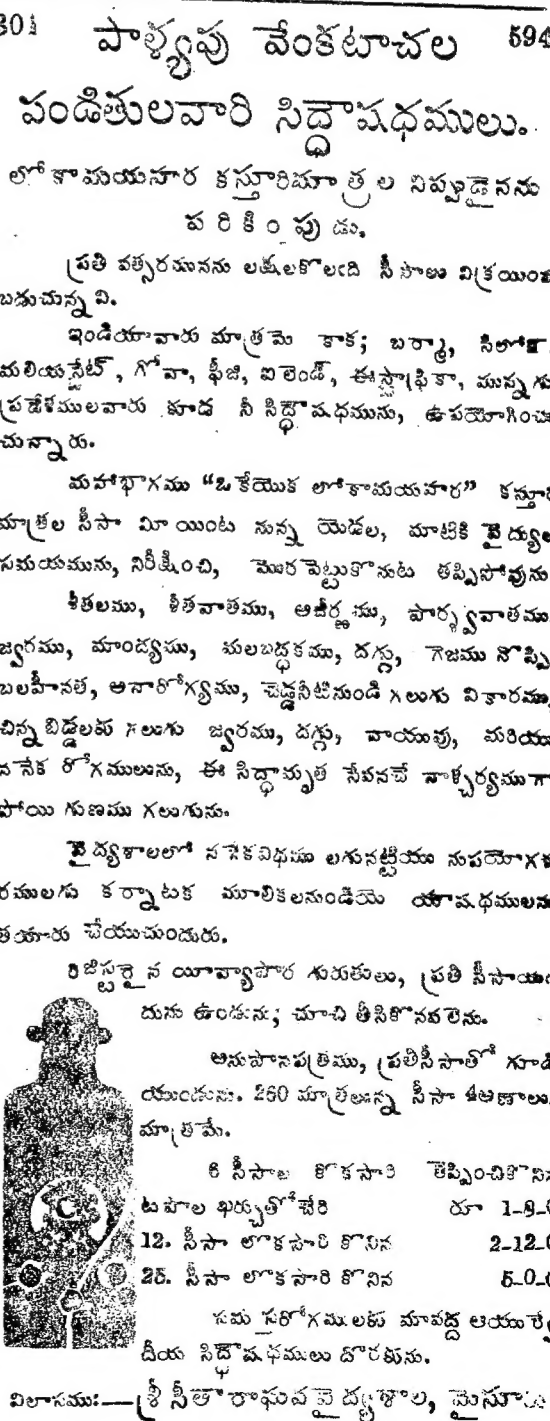 301 పాళ్యపు వేంకటాచల 594
పండితులవారి సిద్ధౌషధములు.
లోకామయహర కస్తూరిమాత్రల నిప్పుడైనను
పరికింపుడు.
ప్రతి వత్సరమునను లక్షలకొలఁది సీసాలు విక్రయింప
బడుచున్నవి.
ఇండియావారు మాత్రమె కాక; బర్మా, సిలోన్
మలియస్టేట్, గోవా, ఫీజి, ఐలెండ్, ఈస్టాఫ్రికా, మున్నగు
ప్రదేశములవారు కూడ నీ సిద్ధౌషధమును, ఉపయోగించు
చున్నారు.
మహాభాగము "ఒకేయొక లోకామయహర" కస్తూరి
మాత్రల సీసా మీ యింట నున్న యెడల, మాటికి వైద్యుల
సమయమును, నిరీక్షించి, మొరపెట్టుకొనుట తప్పిపోవును
శీతలము, శీతవాతము, ఆజీర్ణము, పార్శ్వవాతము
జ్వరము, మాంద్యము, మలబద్ధకము, దగ్గు, గొజము నొప్పి
బలహీనత, అనారోగ్యము, చెడ్డనీటినుండి గలుగు వికారము,
చిన్న బిడ్డలకు గలుగు జ్వరము, దగ్గు, వాయువు, మరియు
ననేక రోగములును, ఈ సిద్ధామృత సేవనచే నాశ్చర్యముగా
పోయి గుణము గలుగును.
వైద్యశాలలో ననేకవిధము లగునట్టియు నుపయోగక
రములగు కర్నాటక మూలికలనుండియె యౌషధములను
తయారు చేయుచుందురు.
రిజిస్టరైన యీవ్యాపార గురుతులు, ప్రతి సీసాయం
దును ఉండును; చూచి తీసికొనవలెను.
అనుపానపత్రము, ప్రతిసీసాతో గూడ
యుండును. 260 మాత్రలున్న సీసా 4అణాలు
మాత్రమే.
6 సీసాలు కొకసారి తెప్పించికొనిన
టపాల ఖర్చుతోచేరి రూ 1-8-0
12. సీసా లొకసారి కొనిన 2-12-0
25. సీసా లొకసారి కొనిన 5-0-0
సమస్తరోగములకు మావద్ద ఆయుర్వే
దీయ సిద్ధౌషధములు దొరకును.
విలాసము:—శ్రీ సీతారాఘవవైద్యశాల, మైసూరు